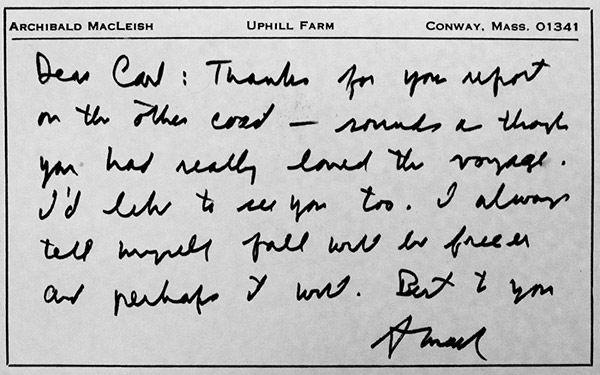 ARCHIBALD MACLEISH UPHILL FARM CONWAY, MASS. 01341
Dear Carl: Thanks for your report
on the other coast — sounds as though
you had really loved the voyage.
I'd like to see you too. I always
tell myself fall will be freer
and perhaps it will. Best to you